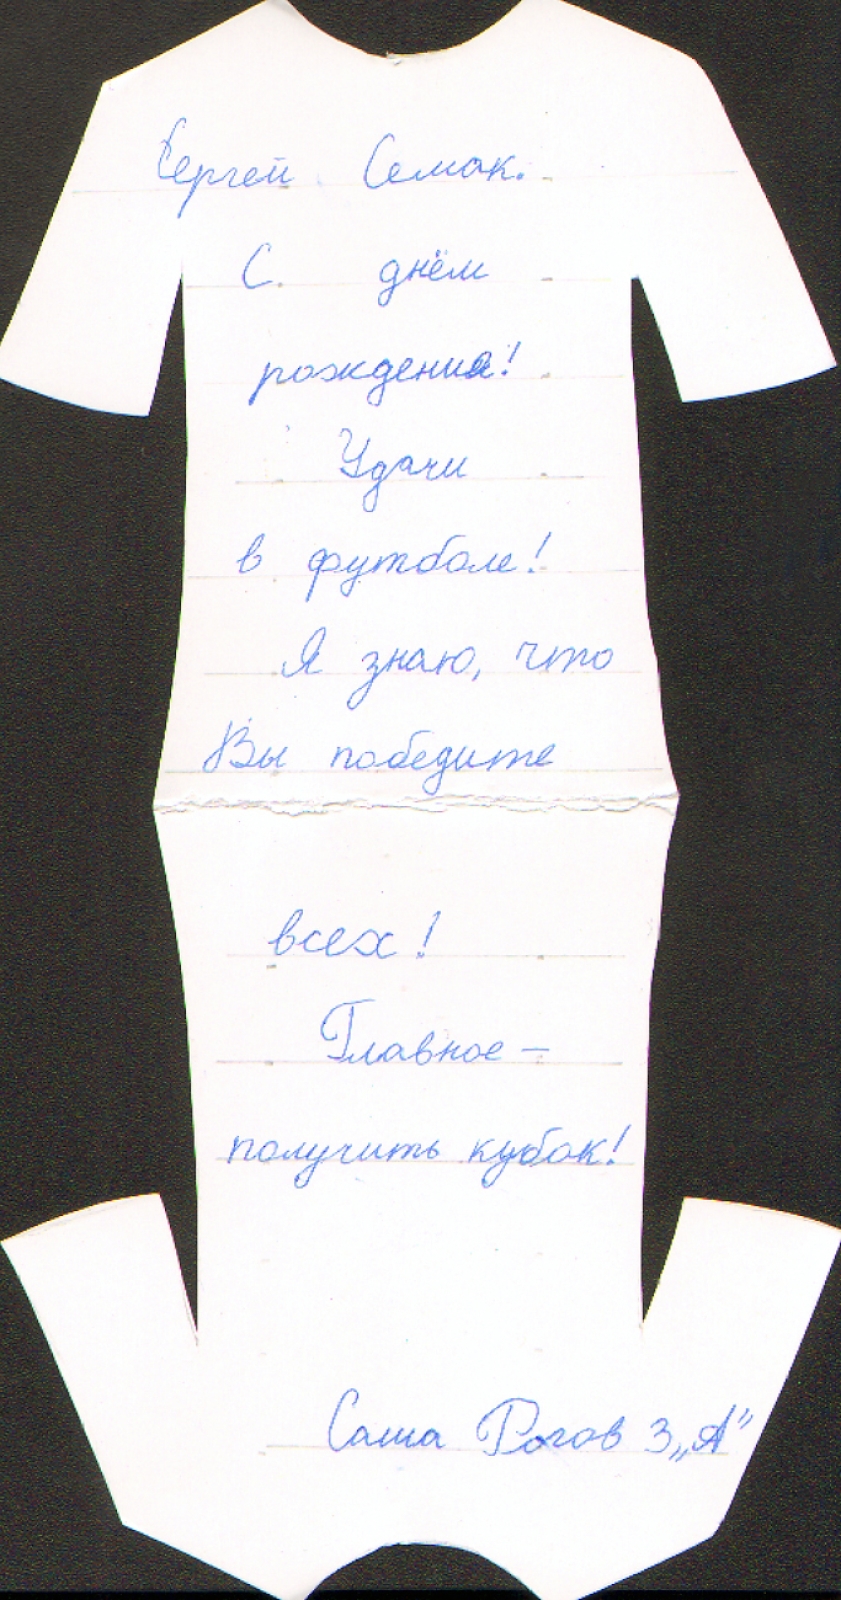 Сергей Семак.
С днём
рождения!
Удачи
в футболе!
Я знаю, что
Вы победите
всех!
Главное —
получить кубок!
Саша Рогов 3 „А”